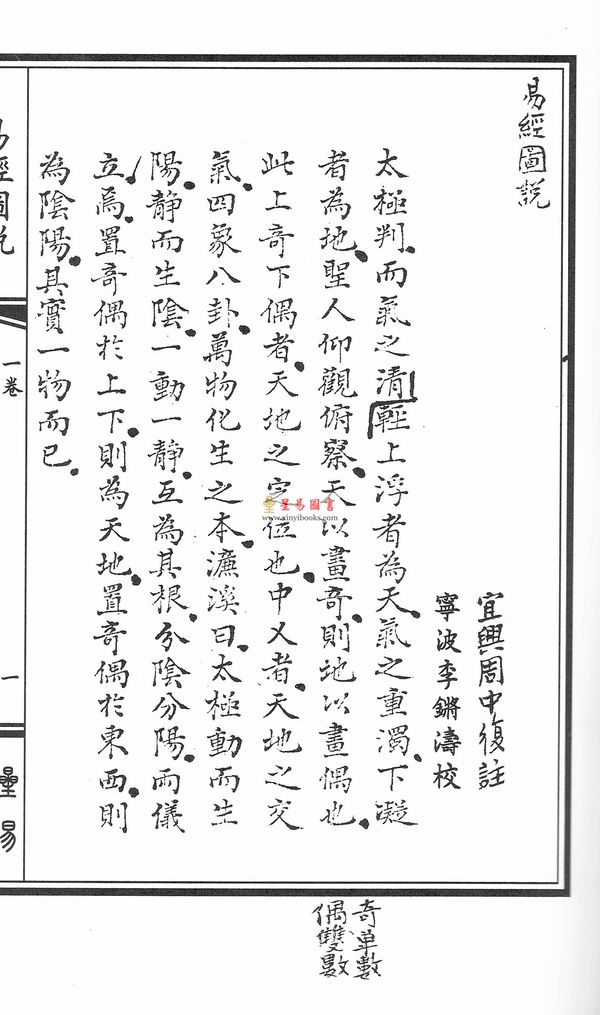 易經圖説
宜興周中復註
寧波李鏘濤校
太極判.而氣之清輕上浮者為天.氣之重濁.下凝
者為地.聖人仰觀俯察.天以畫奇.則地以畫偶也.
此上奇下偶者.天地之定位也.中乂者.天地之交
氣.四象八卦.萬物化生之本.濂溪曰.太極動而生
陽.静而生陰.一動一静.互為其根.分陰分陽.兩儀
立焉.置奇偶於上下.則為天地.置奇偶於東西.則
為陰陽.其實一物而已.
易經圖說
一卷
一
星易
奇單數
偶雙數
星易圖書
www.xinyibooks.com